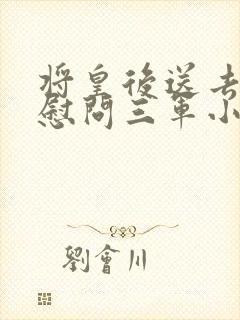 將皇後送去
慰問三軍小
劉會川